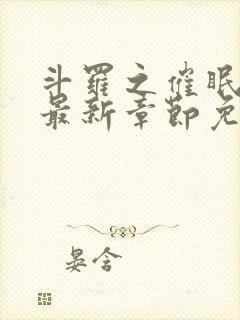 斗羅之催眠
最新章節免
晏含